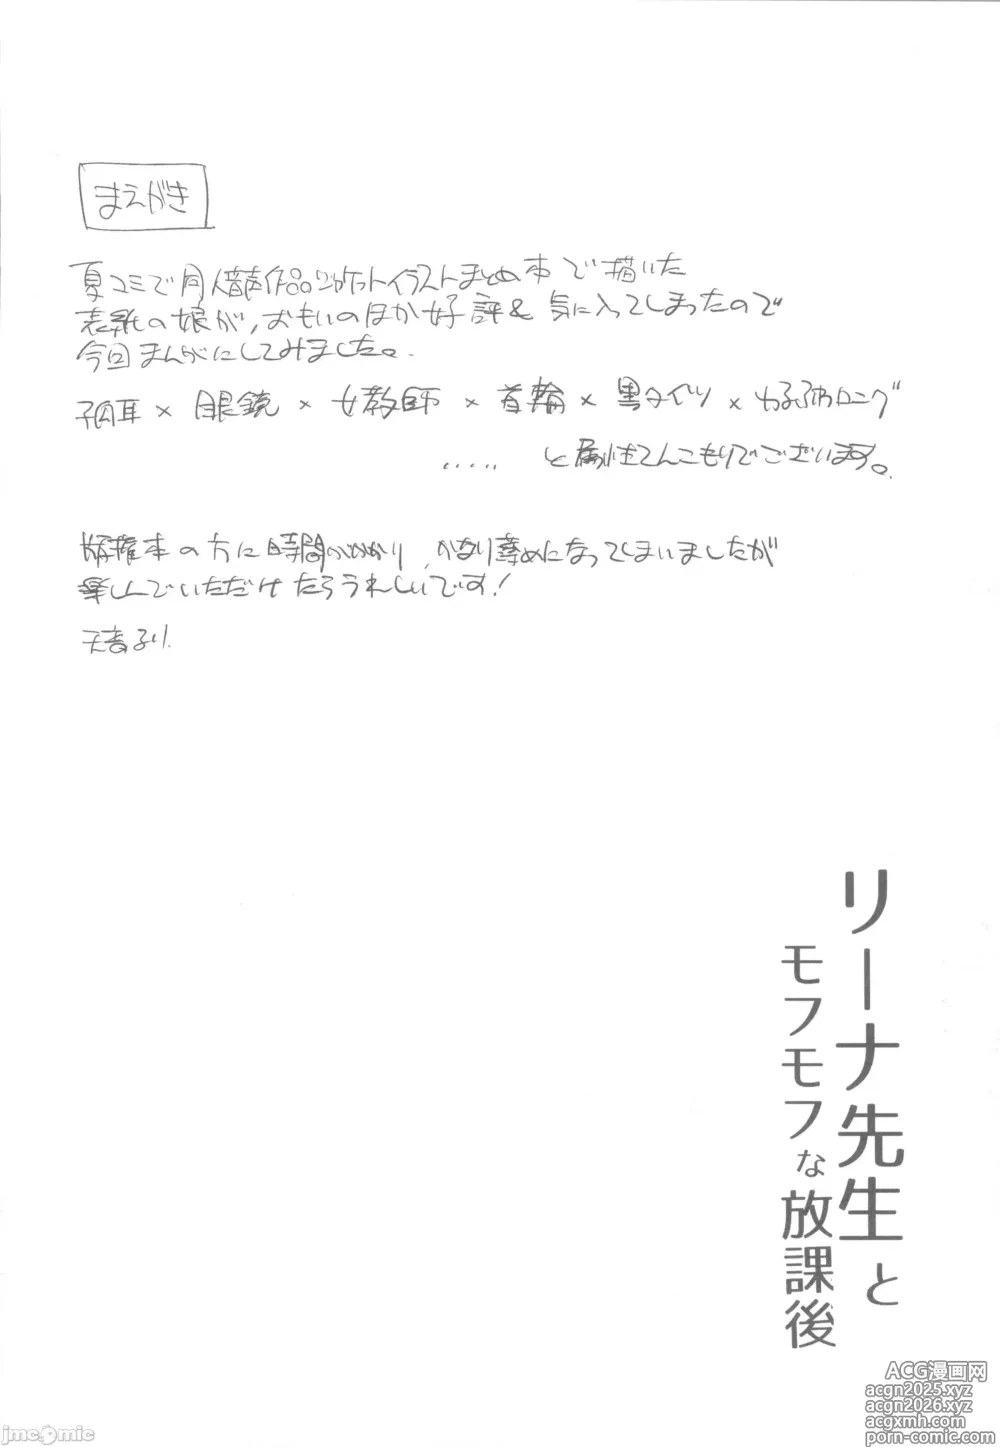 まえがき
夏コミで同人音声作品ジャケットイラストまとめ本で描いた
表紙の娘が、おもいのほか好評&気に入ってしまったので
今回まんがにしてみました。
狐耳×眼鏡×女教師×首輪×黒タイツ×ゆるふわロング
..... と属性てんこもりでございます。
版権本の方に時間がかかり、かなり薄めになってしまいましたが
楽しんでいただけたらうれしいです!
リーナ先生と
モフモフな放課後
ACG漫画网
acgn2025.xyz
acgn2026.xyz
acgxmh.com
porn-comic.com
jmc mic